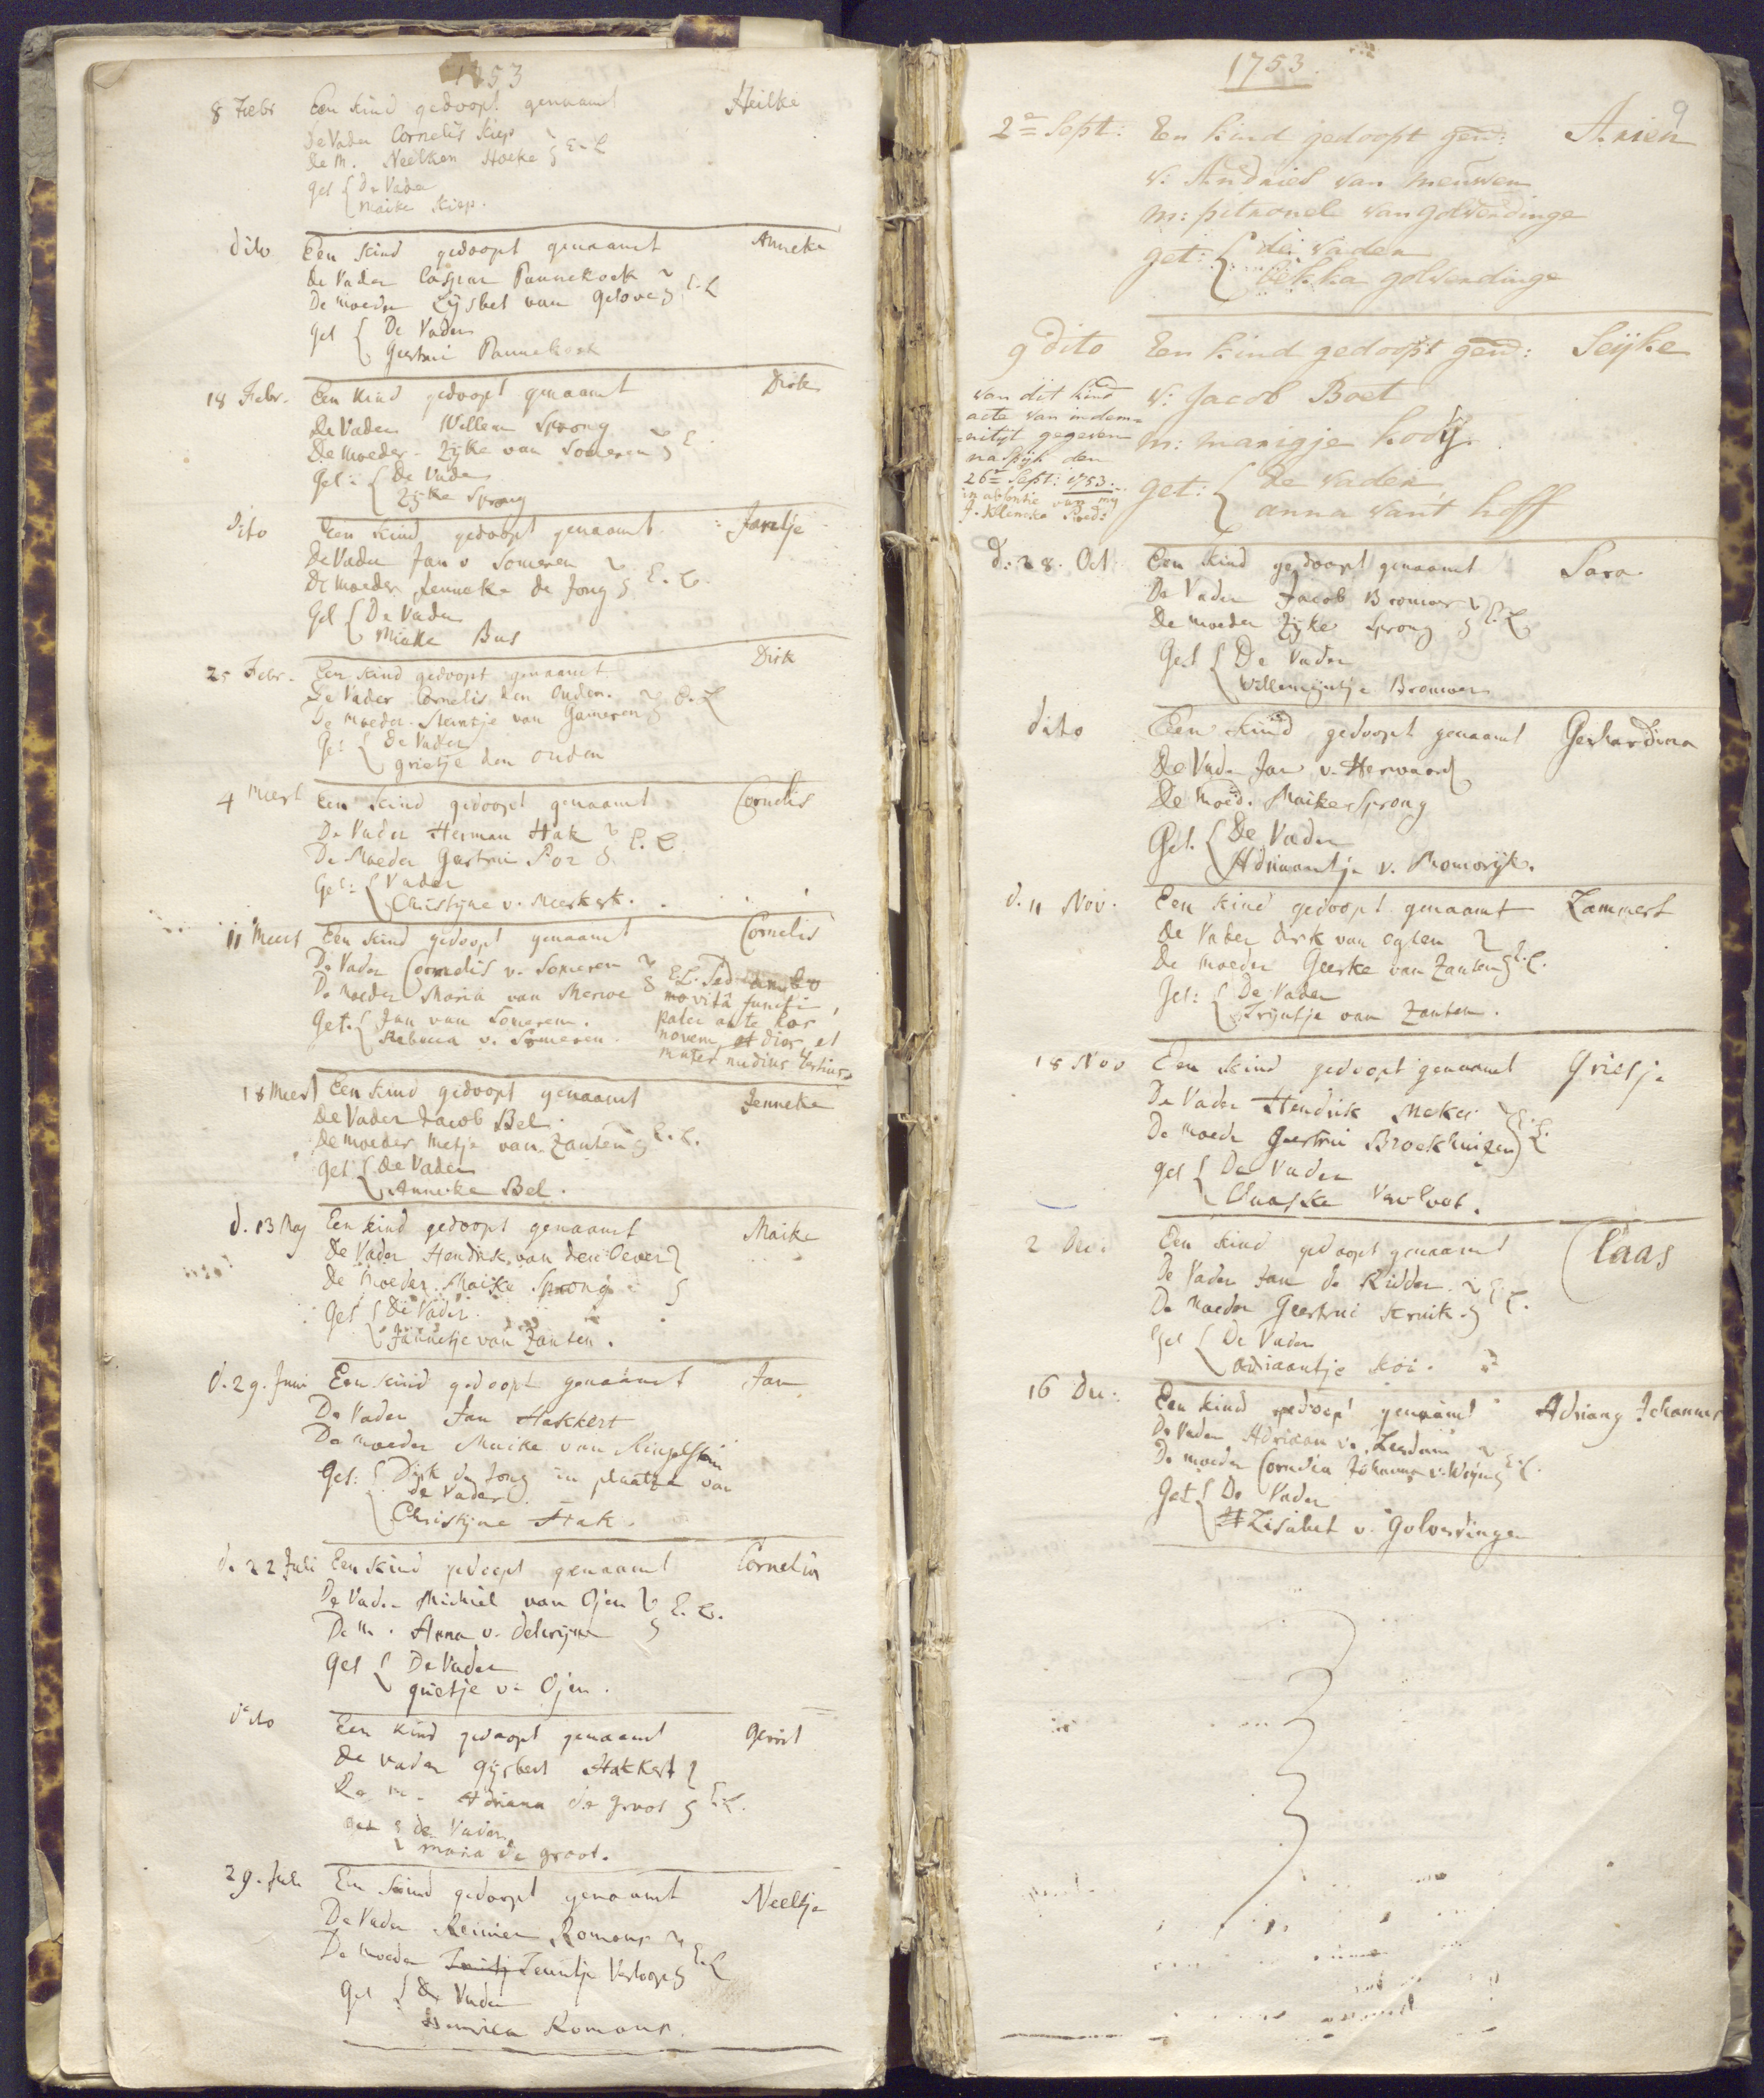 1753
8 Febr Een kind gedoopt genaamt Heilke
De Vader Cornelis Kiep
de M. Neelken Hoeke E. L
get De Vader
Maike Kiep.
dito Een kind gedoopt genaamt Anneke
De Vader Caspar Pannekoek
De moeder Lijsbet van Gelove E. L
get De Vader
Geertrui Pannekoek
18 Febr. Een kind gedoopt genaamt Dirk
De Vader Willem Sprong
De moeder Zijke van Someren E.
Get: De Vader
Zijke Sprong
Dito Een kind gedoopt genaamt Jantje
De Vader Jan v Someren
De moeder Jenneke de Jong E. E.
Get De Vader
Mieke Bus
25 Febr. Een kind gedoopt genaamt Dirk
De Vader Cornelis den Ouden.
De moeder. Stantje van Gameren E. L
Get De Vader
grietje den Ouden
4 Meert Een kind gedoopt genaamt Cornelis
De Vader Herman Hak
De Moeder Geertrui Por E. E.
Get: Vader
Christijne v. Meerkerk.
11 Meert Een kind gedoopt genaamt Cornelis
De Vader Cornelis v. Someren
De Moeder Maria van Merwe E. L. Sed ambo
novità functi,
Get. Jan van Someren. pater ante hos
Rebecca v. Someren. novem et dies, et
mater nudius tertius
18 Meert Een kind gedoopt genaamt Jenneke
De Vader Jacob Bel.
De moeder Metje van Zanten E. E.
Get De Vader
Anneke Bel.
d. 13 May Een kind gedoopt genaamt Maike
De Vader Hendrik van den Oever
De Moeder Maike Sprong
Get De Vader.
Jannetje van Zanten.
d. 29. Juni Een kind gedoopt genaamt Jan
De Vader Jan Hakkert
De moeder Maike van
Get: Dirk de Jong in plaatze van
de Vader
Christijne Hak.
d. 22 Juli Een kind gedoopt genaamt Cornelia
De Vader Michiel van Ojen E. E.
De M. Anna v. delwijne
Get De Vader
grietje v. Ojen.
dito Een kind gedoopt genaamt Gerrit
De Vader Gijsbert Hakkert
De m. Adriana de groot E. L.
get de Vader
Maria de groot.
29. Juli Een kind gedoopt genaamt Neeltje
De Vader Reinier Romans
De Moeder Teuntje Verloop E. L
Get De Vader
Henrica Romans.
1753.
9
2e Sept: En kind gedoopt gend: Arien
v: Andries van meuwen
m: petronel van golverdinge
get: de vader
bekka golverdinge
9 dito En kind gedoopt gend: Seijke
van dit kind v: Jacob Boet
acte van indem=
=nityt gegeven m: marigje kooij.
na Spijk den
26e Sept: 1753. get: de vader
in absentie van mij anna van't hoff
J. Klencke Pred:
d. 28. Oct. Een kind gedoopt genaamt Sara
De Vader Jacob Brouwer
De moeder Zijke Sprong E. L
Get De Vader
Willemijntje Brouwer
dito Een kind gedoopt genaamt Gerhardina
De Vader Jan v. Herwaard
De Moed. Maike Sprong
Get. De Vader
Adriaantje v. Bromwijk.
d. 11 Nov. Een kind gedoopt genaamt Lammert
De Vader Dirk van Oglen
De moeder Geerke van Zanten E. L.
Get: De Vader
Trijntje van Zanten.
18 Nov Een kind gedoopt genaamt Grietje
De Vader Hendrik Mekes
De moeder Geertrui Broekhuizen E. L.
get De Vader
Claaske Verloot.
2 Dec. Een kind gedoopt genaamt Claas
De Vader Jan de Ridder.
De Moeder Geertrui Kruik. E. E.
Get De Vader
Adriaantje Koi.
16 Dec: Een kind gedoopt genaamt Adriany Johannes
De Vader Adriaan v. Leerdam
De moeder Cornelia Johanna v. Wijn E. E.
Get De Vader
Lisabet v. Golverdinge